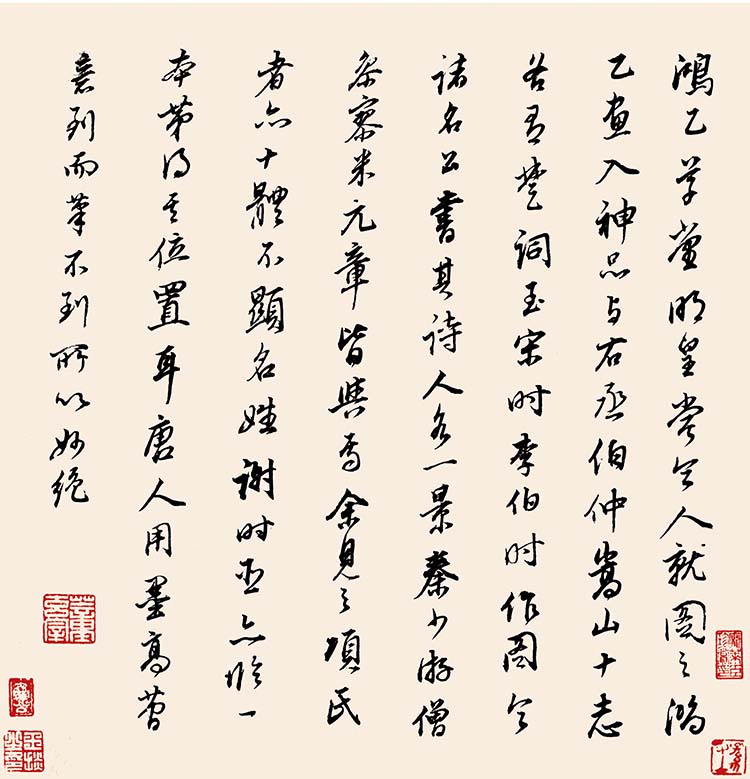 鴻乙草堂明皇嘗令人就圖之鴻
乙畫入神品与右丞伯仲嵩山十志
各有楚詞至宋时李伯时作圖令
諸名公書其詩人各一景秦少游僧
參寥米元章皆與焉余見之項氏
者亦十體不顯名姓謝时臣亦臨一
本苐得其位置耳唐人用墨高
意到而筆不到所以妙絕